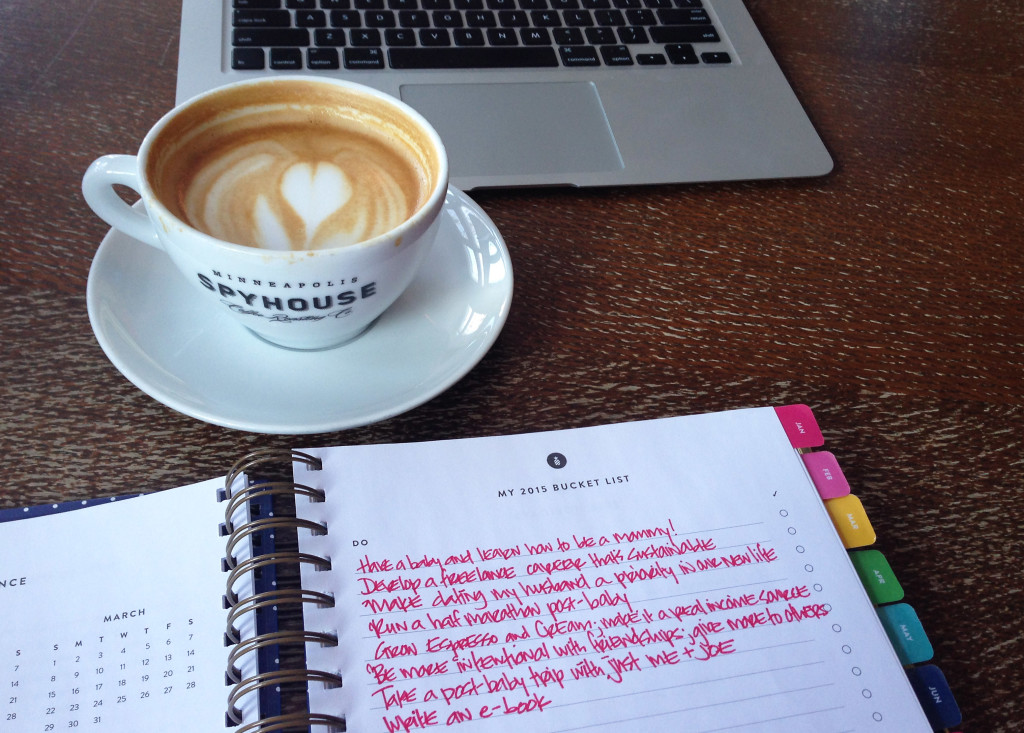 MINNEAPOLIS
SPYHOUSE
Coffee Roasting Co.
MY 2015 BUCKET LIST
DO
Have a baby and learn how to be a mommy!
Develop a freelance career that's sustainable
Make dating my husband a priority in our new life
Run a half marathon post-baby
Grow Espresso and Cream: make it a real income source
Be more intentional with friendships: give more to others
Take a post-baby trip with just me + Joe
Write an e-book
JAN
FEB
MAR
APR
MAY
JUN
NCE
MARCH
S S M T W T F S
1 2 3 4 5 6 7
14 8 9 10 11 12 13 14
21 15 16 17 18 19 20 21
28 22 23 24 25 26 27 28
29 30 31
caps lock
shift
fn
control
option
command
command
option
A S D F G H J K L
Z X C V B N M